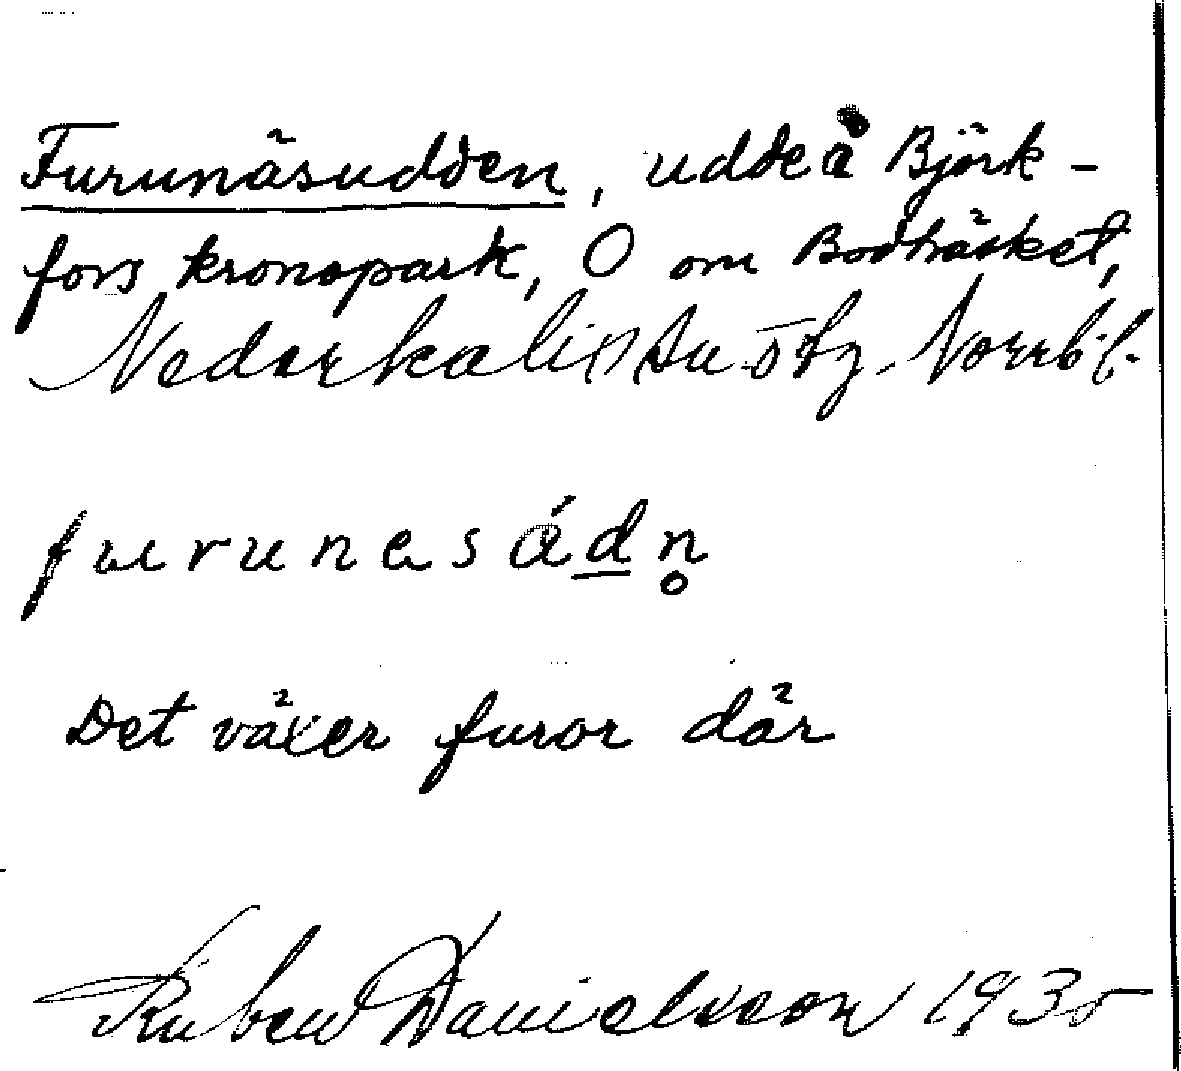 Furunäsudden, udde å Björk-
fors kronopark, O om Bodträsket,
Nederkalix sn ö tg. Norrb. l.
furunesádn̥
Det växer furor där
Ruben Danielsson 1935